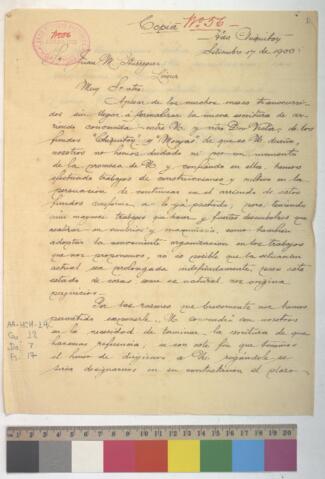 Copia Nº 56
Nº 56
Setiembre 17 de 1900
Sr. Juan M.
Muy Sr. ntro:
Apesar de los muchos meses transcurri-
dos sin llegar a formalizar la nueva escritura de ar-
riendo convenida entre U. y ntro Don de los
fundos y de que es U. dueño,
nosotros no hemos dudado ni por un momento
de la promesa de U. y confiando en ella hemos
efectuado trabajos de construcciones y cultivo en la
persuacion de continuar en el arriendo de estos
fundos conforme a lo ya pactado, pero teniendo
aun mayores trabajos que hacer y fuertes desembolsos que
realizar en y maquinaria, como tambien
adoptar la conveniente organizacion en los trabajos
que nos proponemos, no es posible que la situacion
actual sea prolongada indefinidamente, pues este
estado de cosas como es natural nos origina
perjuicios.
Por las razones que brevemente nos hemos
permitido exponerle, U. convendrá con nosotros
en la necesidad de terminar la escritura de que
hacemos referencia, y con este fin que tenemos
el honor de dirigirnos a U. rogándole se
sirva designarnos en su contestacion el plazo
Ca 18
Do 7
Fs. 17
1 2 3 4 5 6 7 8 9 10 11 12 13 14 15 16 17 18 19 20